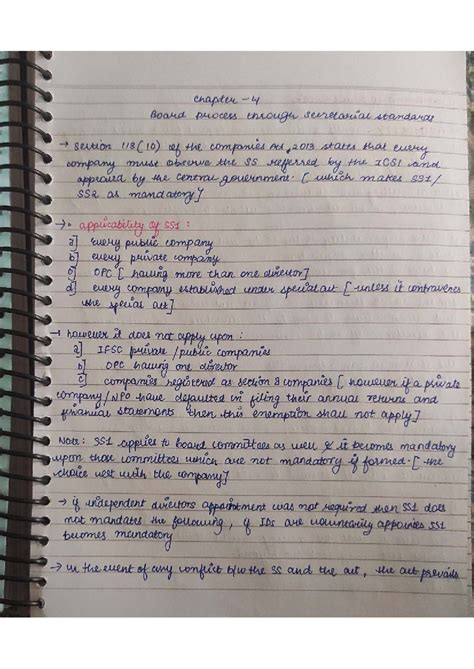 Chapter - 4
Board process through secretarial standards
→ Section 118(10) of the companies Act, 2013 states that every
company must observe the SS referred by the ICSI and
approved by the central government. [ which makes SS1/
SS2 as mandatory]
→• applicability of SS1 :
a] every public company
b] every private company
c] OPC [ having more than one director]
d] every company established under special act [ unless it contravenes
the special act]
→ however it does not apply upon :
a] IFSC private / public companies
b] OPC having one director
c] companies registered as section 8 companies [ however if a private
company/NPO have defaulted in filing their annual returns and
financial statements then this exemption shall not apply]
Note : SS1 applies to board committees as well & it becomes mandatory
upon those committees which are not mandatory if formed. [ the
choice vest with the company]
→ if independent directors appointment was not required then SS1 does
not mandates the following, if IDs are voluntarily appointed SS1
becomes mandatory
→ in the event of any conflict b/w the SS and the act, the act prevails.